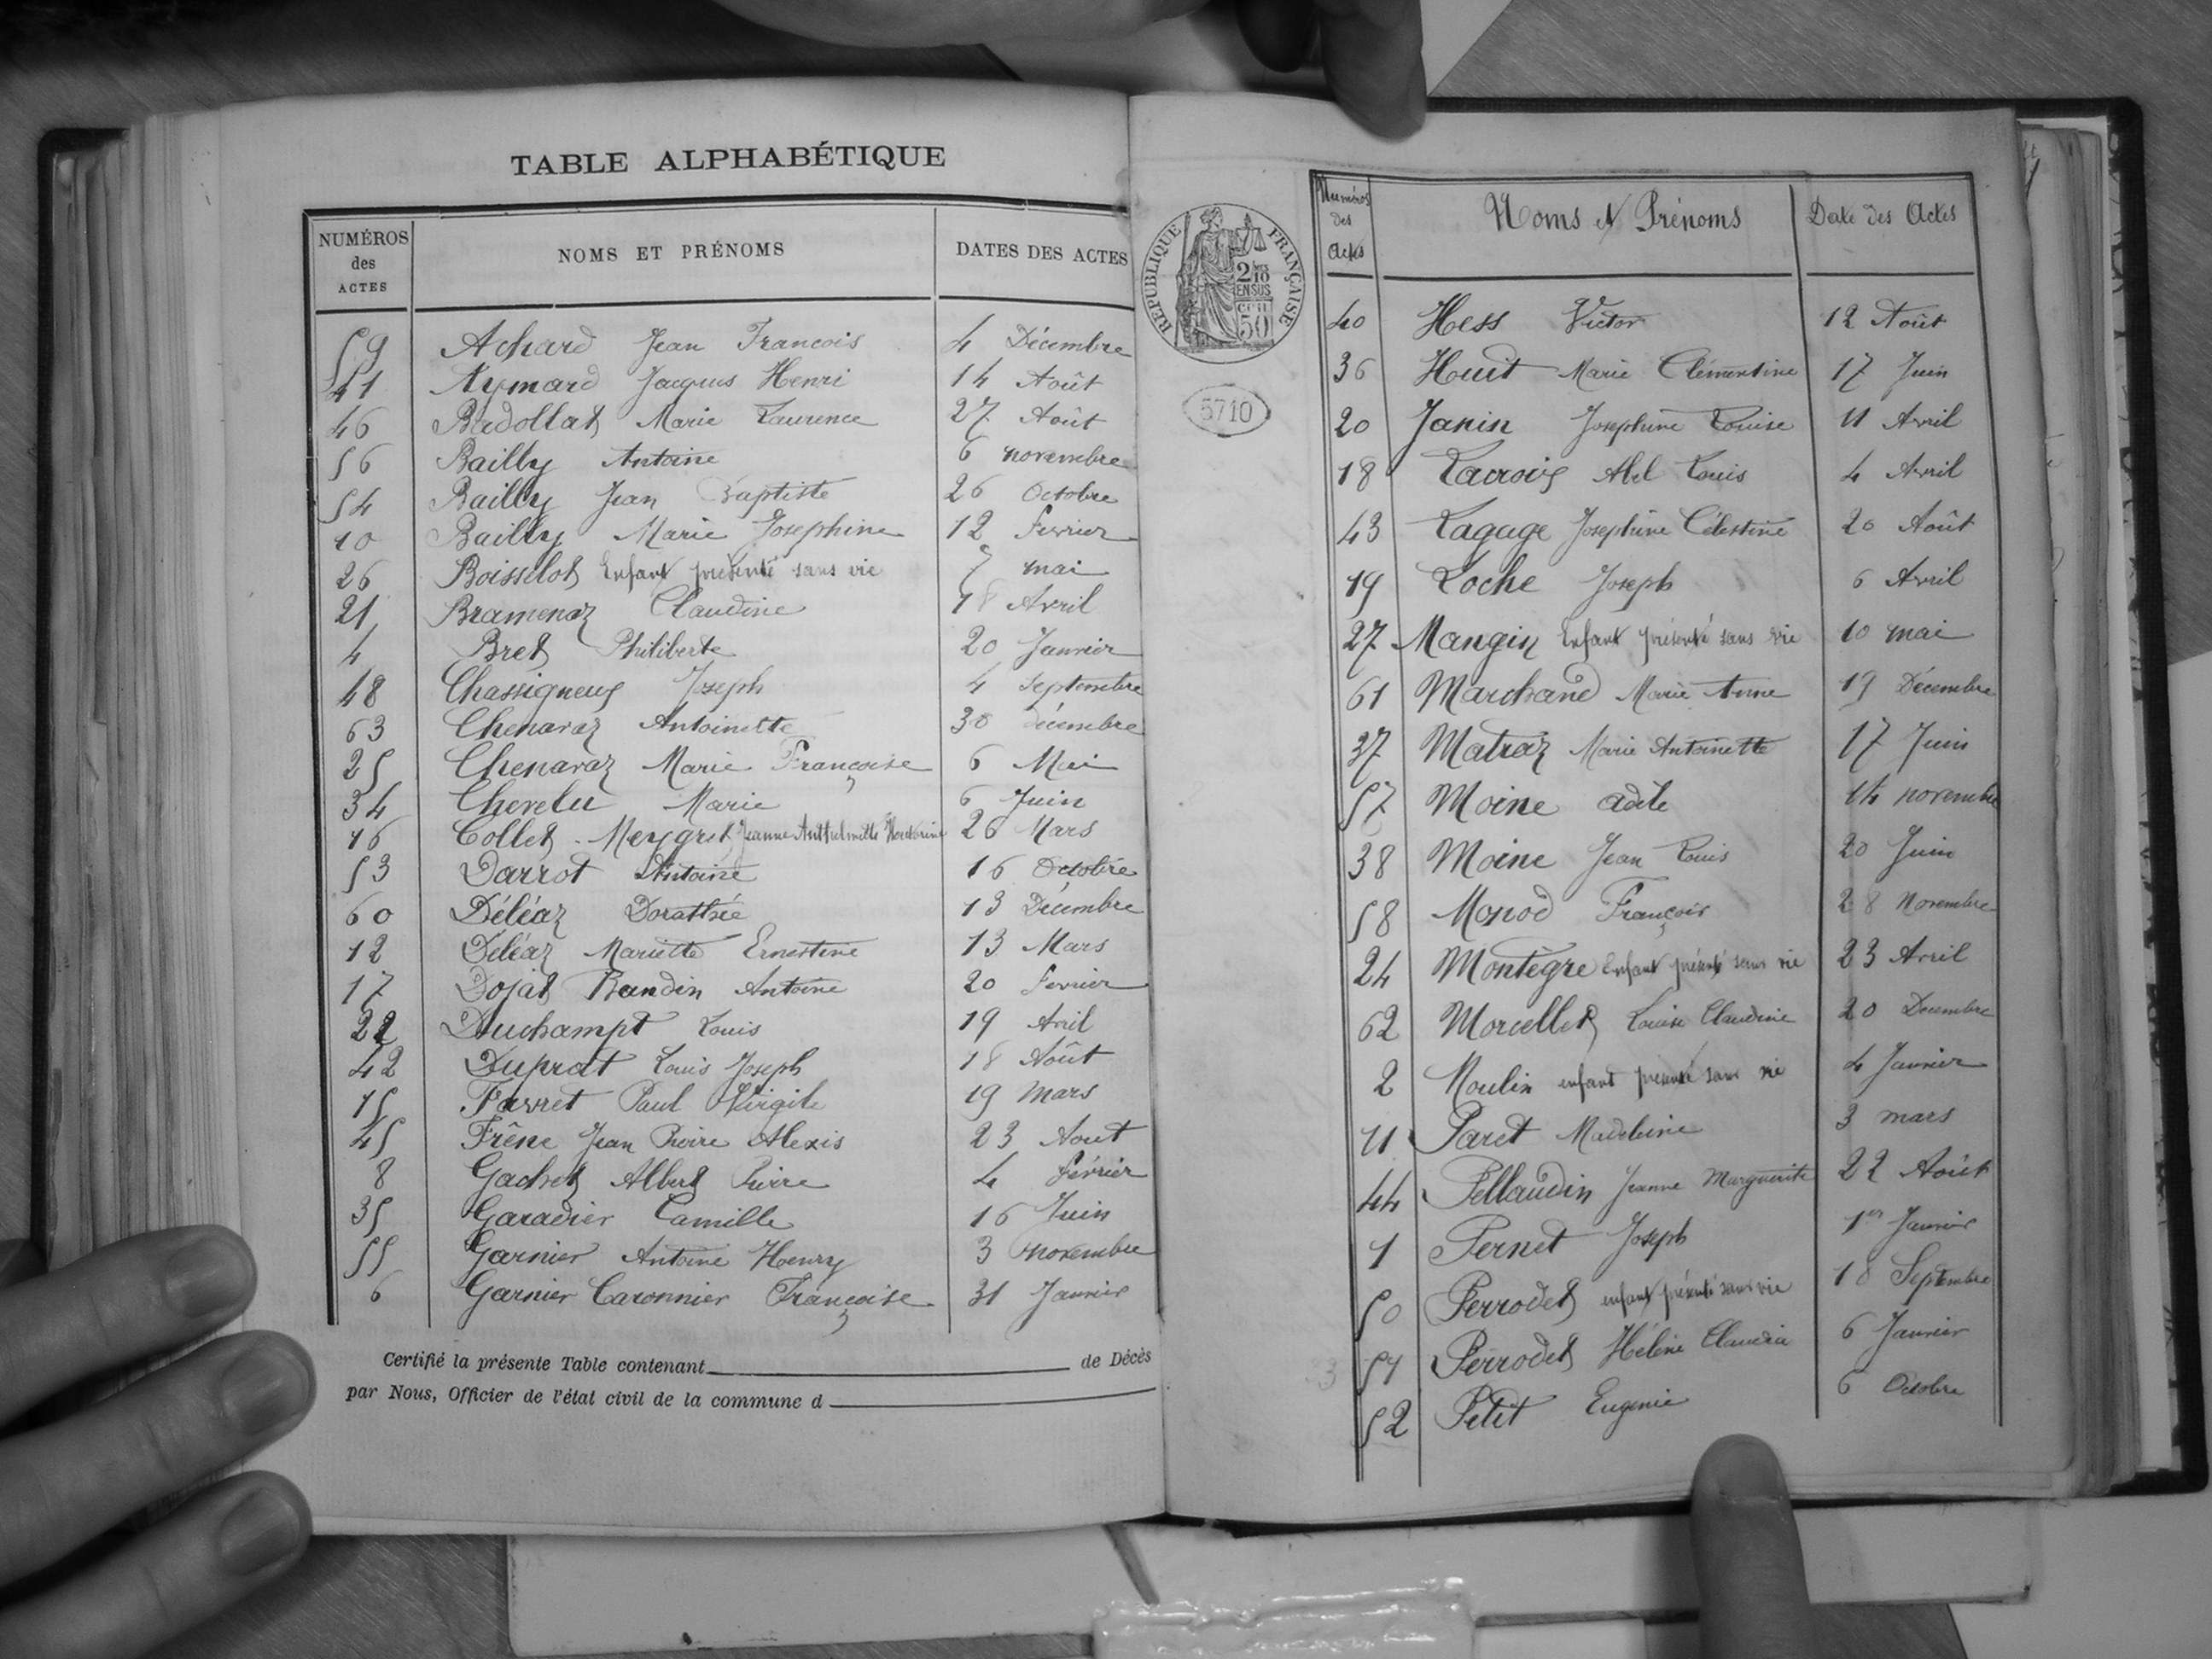 TABLE ALPHABÉTIQUE
NUMÉROS des ACTES NOMS ET PRÉNOMS DATES DES ACTES
59 Achard Jean Francois 4 Décembre
41 Aymard Jacques Henri 14 Août
46 Badollat Marie Laurence 27 Août
56 Bailly Antoine 6 novembre
54 Bailly Jean Baptiste 26 Octobre
10 Bailly Marie Josephine 12 fevrier
26 Boisselot Enfant présenté sans vie 7 mai
21 Bramenaz Claudine 18 Avril
4 Bret Philiberte 20 Janvier
48 Chassigneux Joseph 4 Septembre
63 Chenavaz Antoinette 30 décembre
25 Chenavaz Marie Françoise 6 Mai
34 Chevelu Marie 6 Juin
16 Collet-Meygret Jeanne Anthelmette 26 Mars
53 Darrot Antoine 16 Octobre
60 Déléaz Dorathée 13 Décembre
12 Déléaz Mariette Ernestine 13 Mars
17 Dojat Randin Antoine 20 fevrier
22 Duchampt Louis 19 Avril
42 Duprat Louis Joseph 18 Août
15 Favret Paul Virgile 19 Mars
45 Frêne Jean Pierre Alexis 23 Aout
8 Gachet Albert Pierre 4 février
35 Garadier Camille 16 Juin
55 Garnier Antoine Henry 3 novembre
6 Garnier Caronnier Françoise 31 Janvier
Certifié la présente Table contenant de Décès
par Nous, Officier de l'état civil de la commune d
RÉPUBLIQUE FRANÇAISE
2/10
EN SUS
50
5710
Numéros des Actes Noms et Prénoms Date des Actes
40 Hess Victor 12 Août
36 Huit Marie Clémentine 17 Juin
20 Janin Josephine Louise 11 Avril
18 Lacroix Abel Louis 4 Avril
43 Lagage Josephine Célestine 20 Août
19 Loche Joseph 6 Avril
27 Mangin Enfant présenté sans vie 10 mai
61 Marchand Marie Anne 19 Décembre
37 Matraz Marie Antoinette 17 Juin
57 Moine adèle 14 novembre
38 Moine Jean Louis 20 Juin
58 Monod François 28 Novembre
24 Montègre Enfant présenté sans vie 23 Avril
62 Morcellet Louise Claudine 20 Decembre
2 Moulin enfant présenté sans vie 4 Janvier
11 Paret Madeleine 3 mars
44 Pellaudin Jeanne Marguerite 22 Août
1 Pernet Joseph 1er Janvier
50 Perrodet enfant présenté sans vie 18 Septembre
51 Perrodet Hélène Claudia 6 Janvier
52 Petit Eugenie 6 Octobre